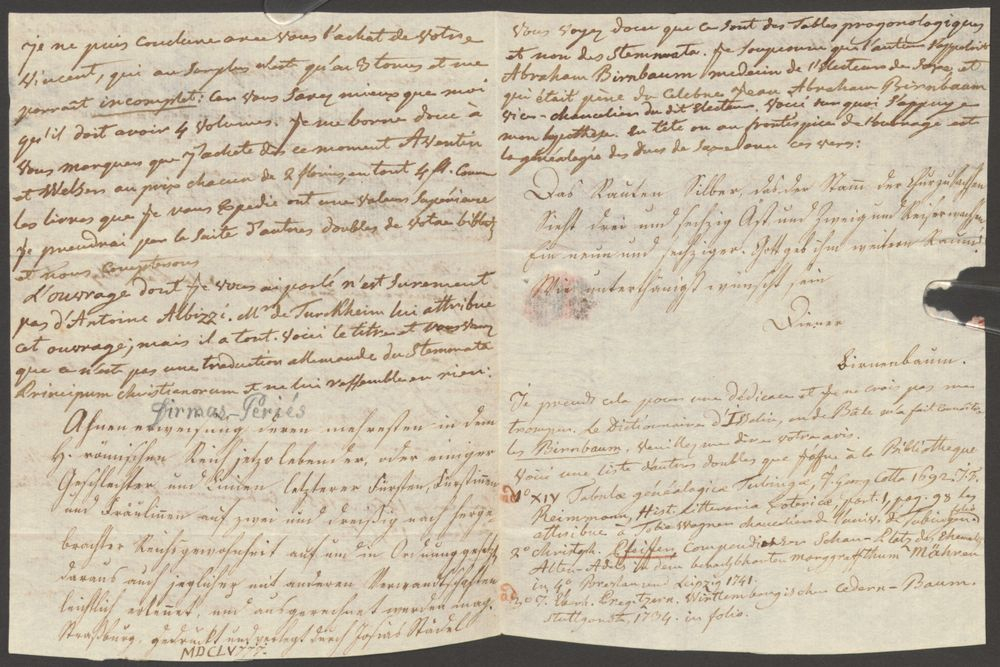 je ne puis conclure avec vous l'achat de votre
Vincent, qui au surplus n'est qu'en 3 tomes et me
parroit incomplet: Car vous savez mieux que moi
qu'il doit avoir 4 volumes. Je me borne donc à
vous marquer que j'achete dès ce moment Aventin
et Welsers au prix chacun de 2 florins, en tout 4 fl. Comme
les livres que je vous expedie ont une valeur supérieure
je prendrai par la suite d'autres doubles de votre biblioth.
et nous compterons
L'ouvrage dont je vous ai parlé n'est surement
pas d'Antoine Albizzi. Mr. de Turckheim lui attribue
cet ouvrage; mais il a tort. Voici le titre et vous verrez
que ce n'est pas une traduction allemande du Stemmata
Principum Christianorum et ne lui ressemble en rien.
Firmas-Periés
Ahnenerweisung deren mehresten in dem
H. römischen Reich jetzo lebender, oder einiger
Geschlechter und Linien letzterer Fürsten, Fürstinen
und Fräulinen auf zwei und dreißig nach herge
brachter Reichsgewohnheit auf und in Ordnung gesetzt
daraus auch jeglicher mit anderen Verwandtschaften
leichtlich erlernet, und ausgerechnet werden mag.
Straßburg, gedruckt und verlegt durch Josias Städel
MDCLV
Vous voyez donc que ce sont des Tables progonologiques
et non des Stemmata. Je soupconne que l'auteur s'appeloit
Abraham Birnbaum, medecin de l'Electeur de Saxe, et
qui était père du Celebre Jean Abraham Birnbaum
Vice-chancelier du dit Electeur. Voici sur quoi s'appuye
mon hypothese. En tête ou au frontispice de l'ouvrage est
la généalogie des Ducs de Saxe avec ces vers:
Das Rauten Silber, das der Stamm der Churzusachsen
Sieht drei und sechzig Äst und Zweig und Reiser wachsen
Ein neun und sechziger. Gott geb ihm weitern Raum!
Wie unterthänigst wünscht sein
Diener
Birnenbaum.
Je prends cela pour une dédicace et je ne crois pas me
tromper. Le Dictionnaire d'Iselin, ou de Bâle m'a fait connoître
les Birnbaum, Veuillez me dire votre avis.
Voici une liste d'autres doubles que j'offre à la Bibliotheque
1º XIV Tabulæ généalogicæ Tubingæ, J. Georg Cotta 1692. J. F.
Reimmann, Hist. Litteraria parт. 1, pag. 98 les
attribue à Tobie Wagner chancelier de l'univ. de Tubingen folio
2º Christoph. Pfeiffer Compendieuser Schau-Platz des Ehemaligen
Alten-Adels in dem marggraffthum Mähren
in 4º Breslau und Leipzig 1741.
3º J. Ulrich. Pregitzern. Wirttembergischer Cedern-Baum.
Stuttgardt, 1734. in folio.